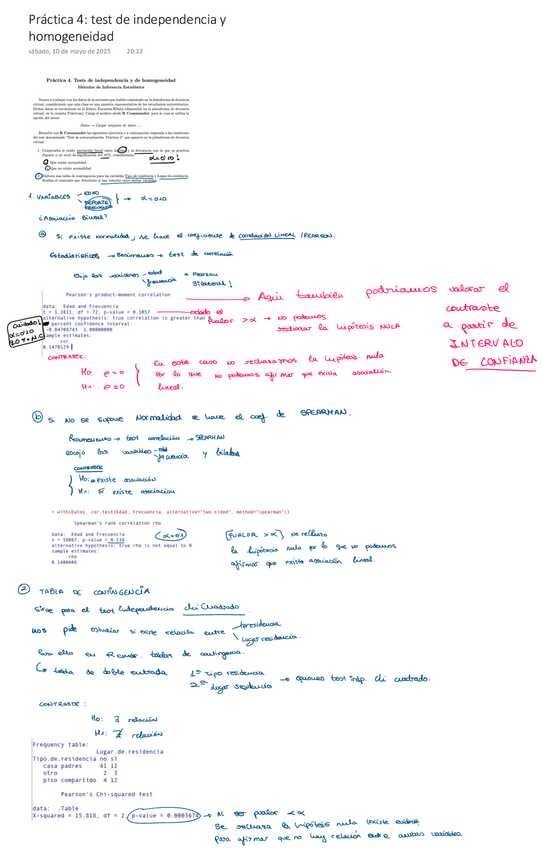 Práctica 4: test de independencia y
homogeneidad
sábado, 10 de mayo de 2025 20:12
Práctica 4. Tests de independencia y de homogeneidad
Métodos de Inferencia Estadística
Vamos a trabajar con los datos de la encuesta que habéis contestado en la plataforma de docencia
virtual, considerando que esta clase es una muestra representativa de los estudiantes universitarios.
Datos → Cargar conjunto de datos
1. Comprueba si existe asociación lineal entre la edad y la frecuencia con la que se practica
deporte a un nivel de significación del 10%, considerando: α=0'10!
Que existe normalidad.
Que no existe normalidad.
Elabora una tabla de contingencia para las variables Tipo de residencia y Lugar de residencia.
Realiza el contraste que determine si hay relación entre ambas variables.
1. VARIABLES - EDAD
DEPORTE FRECUENCIA } → α=0'10
¿Asociación lineal?
a Si existe normalidad, se hace el coeficiente de CORRELACIÓN LINEAL /PEARSON.
Estadísticos → Resúmenes → test de correlación
Elijo las variables - edad frecuencia + Pearson
Bilateral!
Pearson's product-moment correlation
data: Edad and Frecuencia
t = 1.2611, df = 72, p-value = 0.1057
alternative hypothesis: true correlation is greater than
percent confidence interval:
-0.04708743 1.00000000
sample estimates:
cor
0.1470129
cuidado!
α=0'10
90% N.C
dado el
pvalor > α → no podemos
rechazar la hipótesis NULA
Aquí también podríamos valorar el
contraste
a partir de
INTERVALO
DE CONFIANZA
CONTRASTE:
H0: ρ = 0
H1: ρ ≠ 0
En este caso no rechazamos la hipótesis nula
Por lo que no podemos afirmar que exista asociación
lineal.
b Si no se supone Normalidad se hace el coef. de SPEARMAN.
Resúmenes → test correlación → SPEARMAN
escojo las variables - edad frecuencia y bilateral
CONTRASTE
H0: ∄ existe asociación
H1: Sí existe asociación
> with(Datos, cor.test(Edad, Frecuencia, alternative="two.sided", method="spearman"))
Spearman's rank correlation rho
data: Edad and Frecuencia
S = 58067, p-value = 0.234
alternative hypothesis: true rho is not equal to 0
sample estimates:
rho
0.1400606
(α=0'1)
[PVALOR > α] No rechazo
la hipótesis nula por lo que no podemos
afirmar que exista asociación lineal.
2 TABLA DE CONTINGENCIA
Sirve para el test independencia chi cuadrado.
nos pide estudiar si existe relación entre - tpresidencia
lugar residencia.
Para ello en Rcmdr. tablas de contingencia.
↳ tabla de doble entrada 1º Tipo residencia
2º Lugar residencia → opciones test indp. chi cuadrado.
CONTRASTE:
H0: ∃ relación
H1: ∄ relación
Frequency table:
Lugar.de.residencia
Tipo.de.residencia no si
casa padres 41 12
otro 2 3
piso compartido 4 12
Pearson's Chi-squared test
data: .Table
X-squared = 15.818, df = 2, p-value = 0.0003674
→ pvalor < α
Se rechaza la hipótesis nula (existe evidencia
para afirmar que no hay relación entre ambas variables